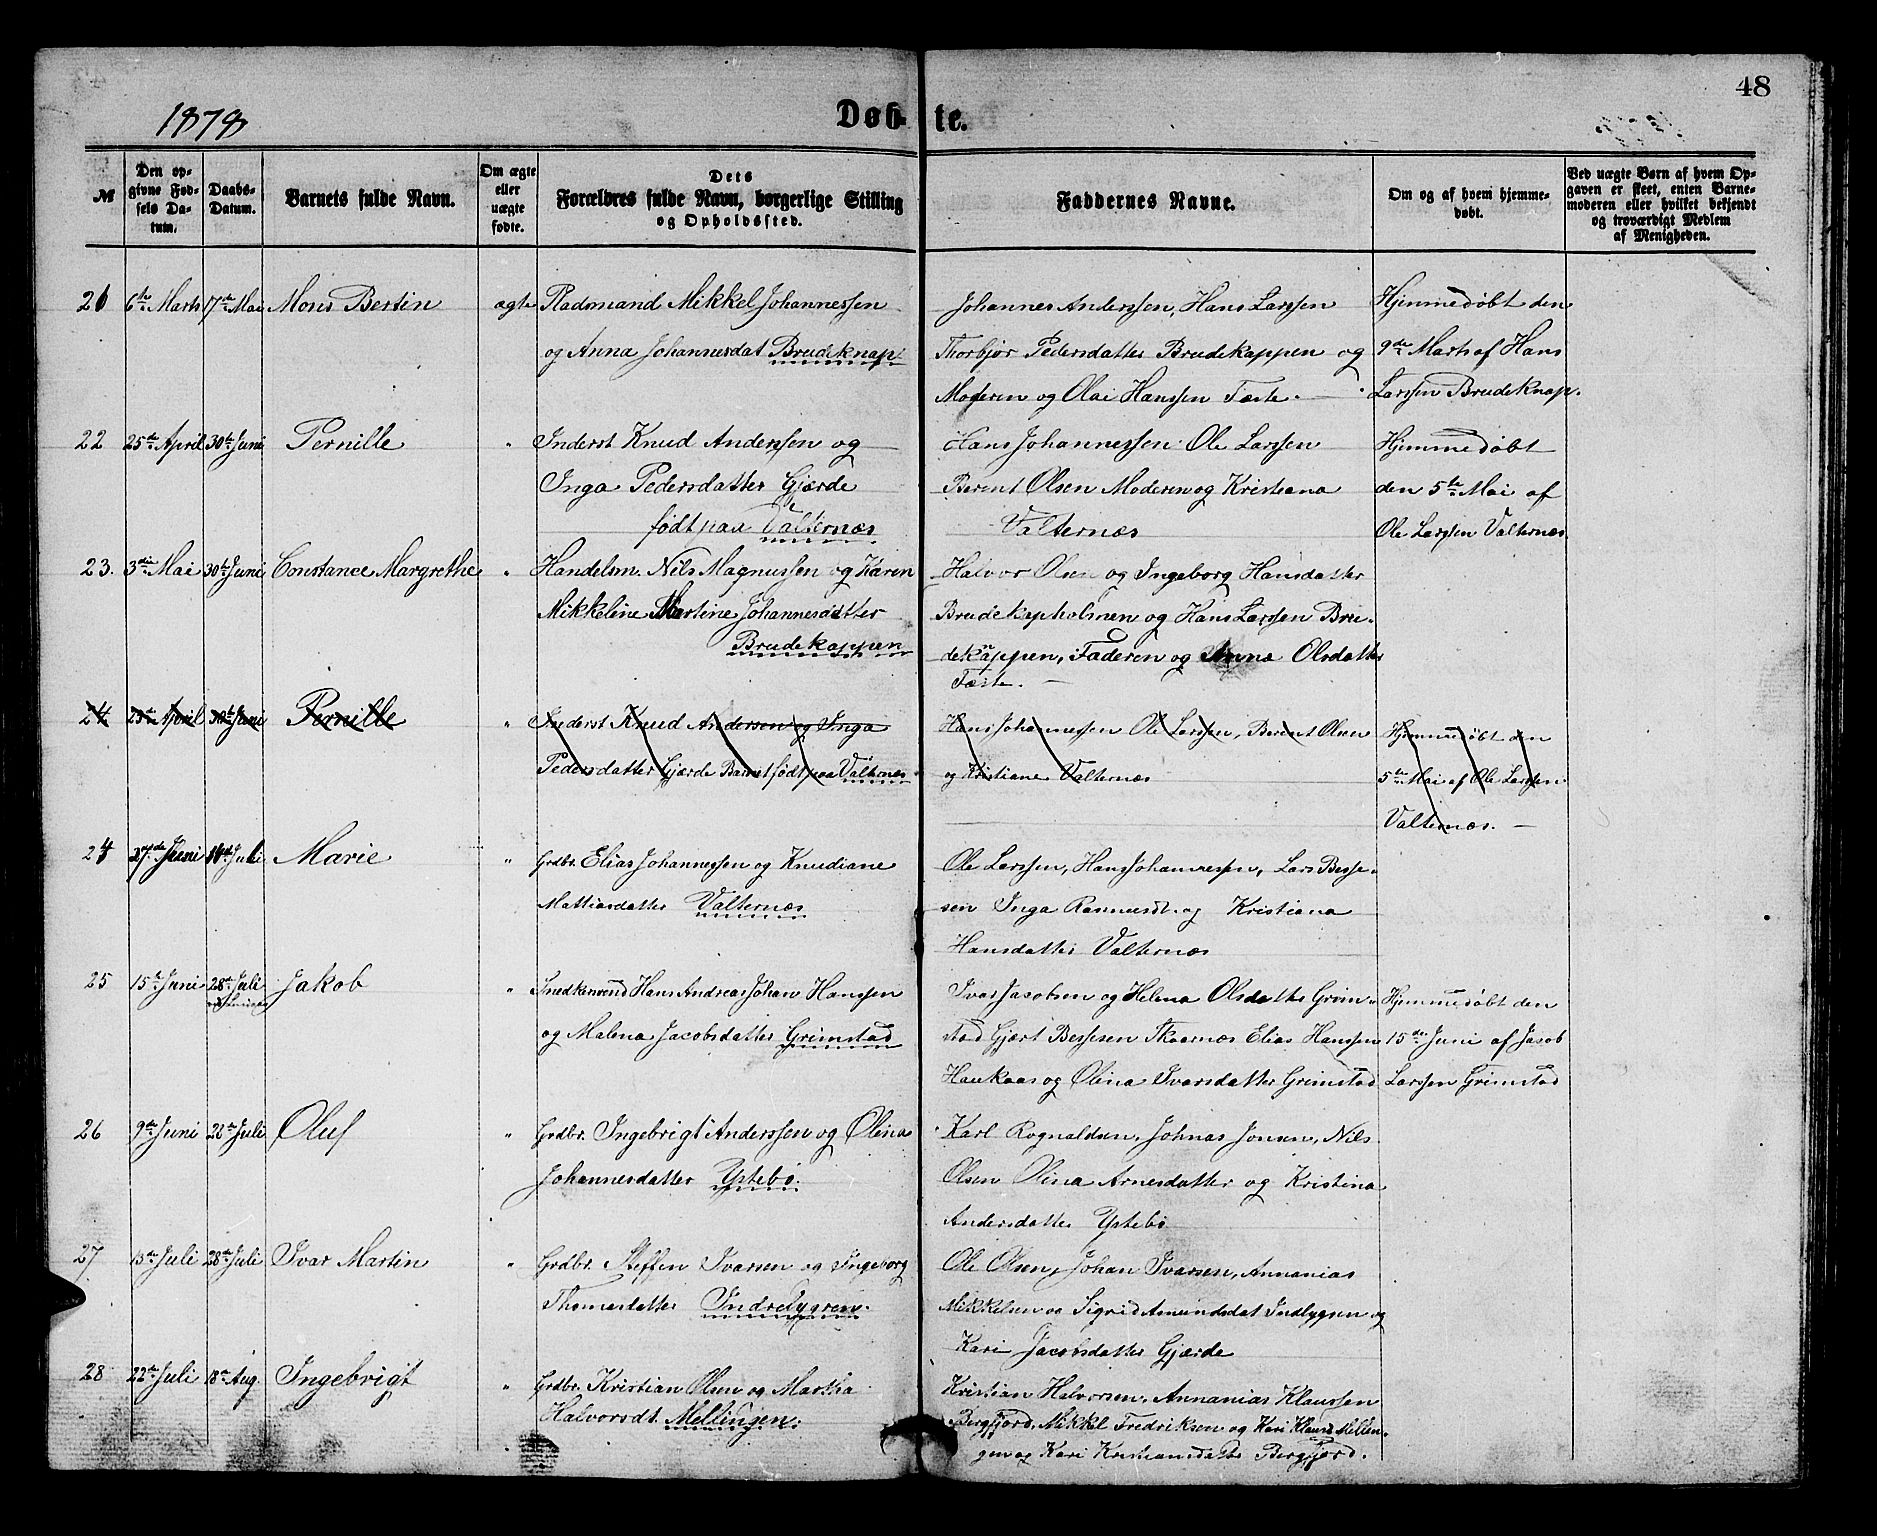 48
1878
Døb-te.
№
Den op-
givne Fød-
sels Da-
tum.
Daabs-
Datum.
Barnets fulde Navn.
Om ægte
eller
uægte
fødte.
Dets
Forældres fulde Navn, borgerlige Stilling
og Opholdssted.
Faddernes Navne.
Om og af hvem hjemme-
døbt.
Ved uægte Børn af hvem Op-
gaven er skeet, enten Barne-
moderen eller hvilket bekjendt
og troværdigt Medlem
af Menigheden.
21 6te Marts 17de Mai Mons Bertin ægte Pladsmand Mikkel Johannessen
og Anna Johannesdat Brudeknap
Johannes Anderssen, Hans Larssen
Thorbjør Pedersdatter Brudekappen og
Moderen og Olai Hanssen Tæste.
Hjemmedøbt den
9de Marts af Hans
Larssen Brudeknap.
22 25de April 30te Juni Pernille " Inderst Knud Anderssen og
Inga Pedersdatter Gjærde
født paa Valternæs
Hans Johannessen Ole Larssen
Berent Olsen Moderen og Kristiana
Valternæs
Hjemmedøbt
den 5te Mai af
Ole Larssen Valternæs
23. 3die Mai 30te Juni Constance Margrethe " Handelsm. Nils Magnussen og Karen
Mikkeline Martine Johannesdatter
Brudekappen
Halvor Olsen og Ingeborg Hansdatter
Brudekapholmen og Hans Larssen Bru-
dekappen, Faderen og Anna Olsdatter
Tæste.
24 25de April 30te Juni Pernille " Inderst Knud Andersen og Inga
Pedersdatter Gjærde Barnet født paa Valternæs
Hans Johannessen Ole Larssen, Berent Olsen
og Kristiane Valternæs
Hjemmedøbt den
5te Mai af Ole Larssen
Valternæs.
24 27de Juni 14de Juli Marie " Grdbr. Elias Johannessen og Knudiane
Mattiasdatter Valternæs
Ole Larssen, Hans Johannessen, Lars Besse-
sen Inga Rasmusdt. og Kristiana
Hansdatter Valternæs
25 15de Juni 28de Juli Jakob " Snedkersvend Hans Andreas Johan Hanssen
og Malena Jacobsdatter Grimstad
Ivar Jacobsen og Helena Olsdatter Grim-
stad Gjært Bessesen Skaarnæs Elias Hanssen
Haukaas og Olina Ivarsdatter Grimstad
Hjemmedøbt den
15de Juni af Jacob
Larssen Grimstad
26 9de Juni 28de Juli Oluf " Grdbr. Ingebrigt Anderssen og Olina
Johannesdatter Ystebø.
Karl Rognaldsen, Johnas Jonsen, Nils
Olsen Olina Arnesdatter og Kristina
Andersdatter Ystebø
27 13de Juli 28de Juli Ivar Martin " Grdbr. Steffen Ivarsen og Ingeborg
Thomasdatter Indrelygren.
Ole Olsen, Johan Ivarsen, Annanias
Mikkelsen og Sigrid Amundsdat Indlygren og
Kari Jacobsdatter Gjærde
28 22de Juli 18de Aug. Ingebrigt " Grdbr. Kristian Olsen og Martha
Halvorsdt. Mellingen.
Kristian Halvorsen, Annanias Klaussen
Bergfjord, Mikkel Fredriksen og Kari Klausd Mellin-
gen og Kari Kristiansdatter Bergfjord.